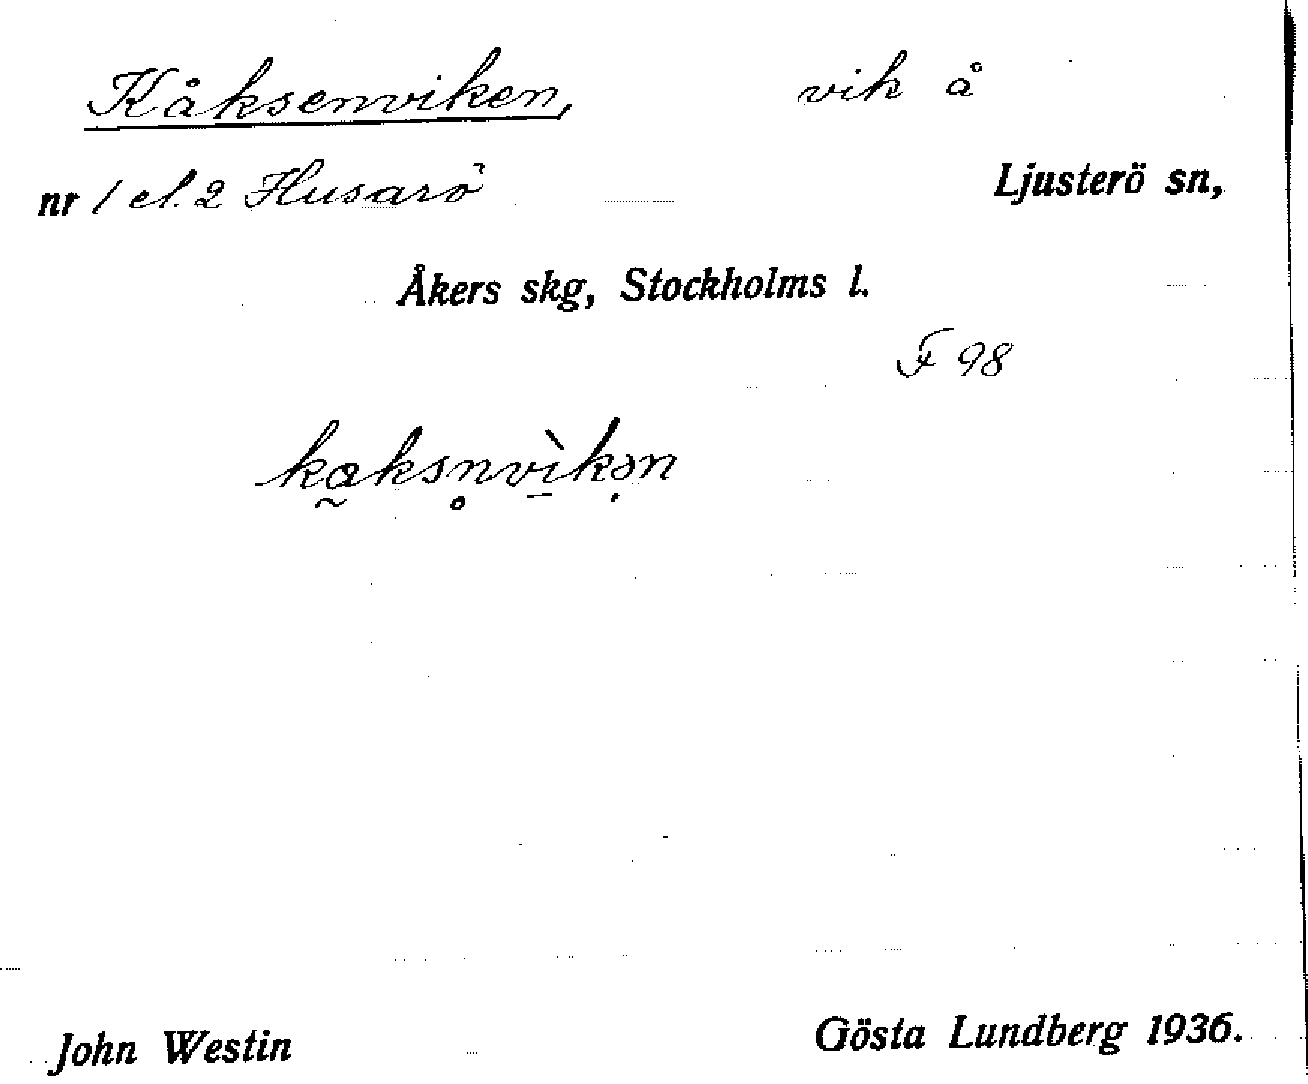 Kåksenviken, vik å
nr 1 el. 2 Husarö Ljusterö sn,
Åkers skg, Stockholms l.
F 98
ka̰ksn̥vì̠kə̣n
John Westin Gösta Lundberg 1936.